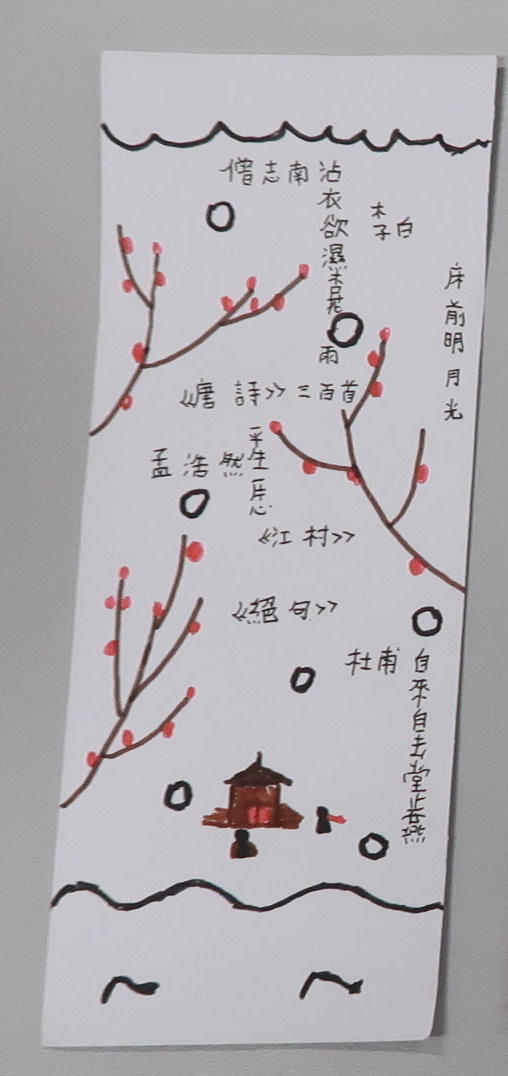 僧志南
沾衣欲濕杏花雨
李白
床前明月光
《唐詩》三百首
孟浩然
平生思
《江村》
《絕句》
杜甫
自來自去堂燕